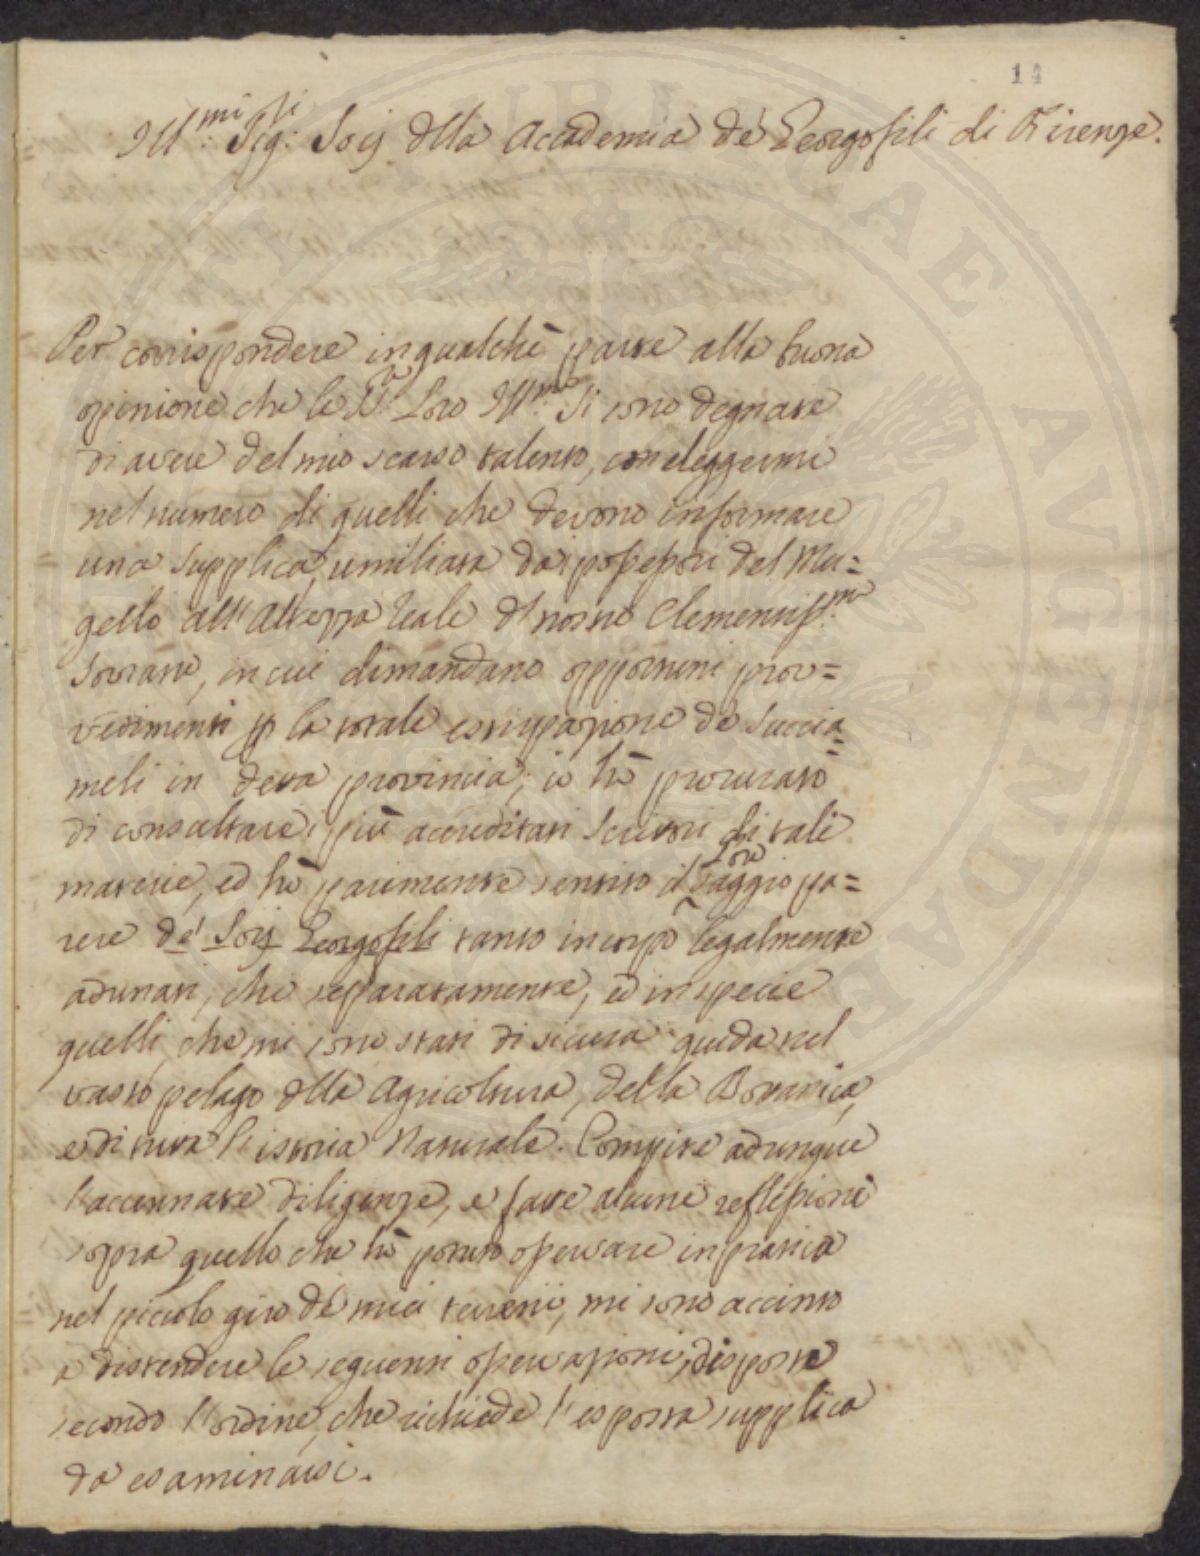 14
Ill.mi Sig.ri Socj della Accademia de' Georgofili di Firenze.
Per corrispondere in qualche parte alla buona
opinione che le SS.rie Loro Ill.me si sono degnate
di avere del mio scarso talento, con eleggermi
nel numero di quelli che devono informare
una supplica, umiliata da i possessori del Mu=
gello all'Altezza Reale del nostro Clementiss.mo
Sovrano, in cui dimandano opportuni prov=
vedimenti p la totale estirpazione de Succia
=
meli in detta provincia; io hò procurato
di consultare i più accreditati Scrittori di tali
materie, ed hò parimente sentito il saggio pa=
rere de' Socj Georgofili tanto in corpo legalmente
adunati, che separatamente, ed in specie
quelli, che mi sono stati di sicura guida nel
vasto pelago della Agricoltura, della Botanica,
e di tutta l'istoria Naturale. Compite adunque
l'accennate diligenze, e fatte alcune reflessioni
sopra quello che hò potuto osservare in pratica
nel piccolo giro de' miei terreni, mi sono accinto
a distendere le seguenti osservazioni, disposte
secondo l'ordine, che richiede l'esposta supplica
da esaminarsi.